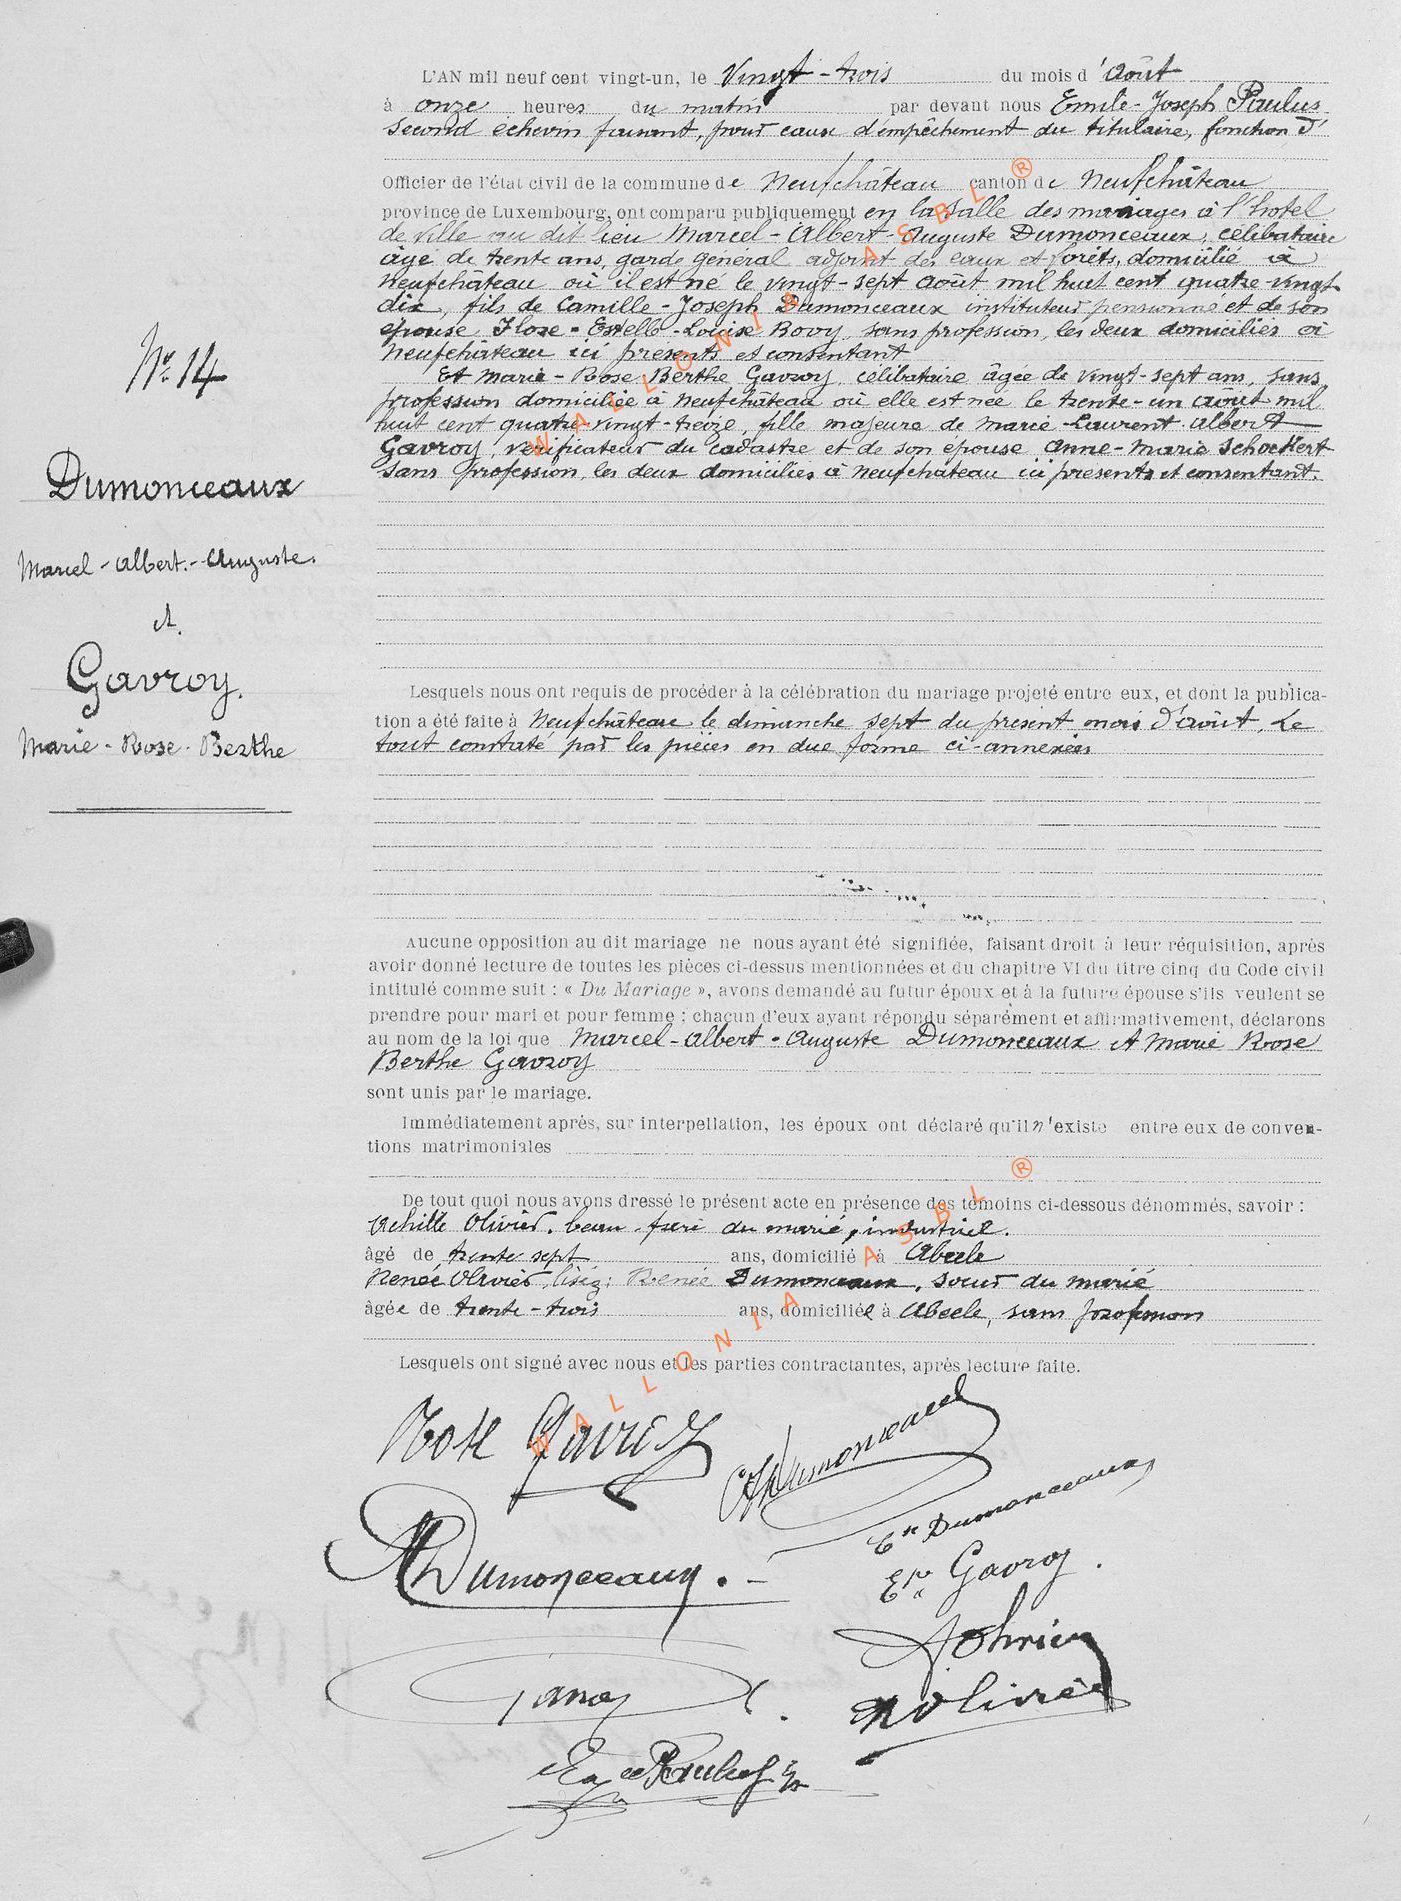 L'AN mil neuf cent vingt-un, le Vingt-trois du mois d'Août
à onze heures du matin par devant nous Emile-Joseph Paulus,
second échevin faisant, pour cause d'empêchement du titulaire, fonction d'
Officier de l'état civil de la commune de Neufchâteau canton de Neufchâteau
province de Luxembourg, ont comparu publiquement en la salle des mariages à l'hotel
de ville au dit lieu Marcel-Albert-Auguste Dumonceaux, célibataire
âgé de trente ans, garde général adjoint des eaux et forêts, domicilié à
Neufchâteau où il est né le vingt-sept août mil huit cent quatre-vingt-
dix, fils de Camille-Joseph Dumonceaux instituteur pensionné et de son
épouse Flore-Estelle-Louise Bovy, sans profession, les deux domiciliés à
Neufchâteau ici présents et consentant
Et Marie-Rose Berthe Gavroy, célibataire âgée de vingt-sept ans, sans
profession domiciliée à Neufchâteau où elle est née le trente-un août mil
huit cent quatre-vingt-treize, fille majeure de Marie-Laurent-Albert
Gavroy, vérificateur du cadastre et de son épouse Anne-Marie Schockert
sans profession, les deux domiciliés à Neufchâteau ici présents et consentant.
N° 14
Dumonceaux
Marcel-Albert-Auguste.
et.
Gavroy.
Marie-Rose-Berthe
Lesquels nous ont requis de procéder à la célébration du mariage projeté entre eux, et dont la publica-
tion a été faite à Neufchâteau le dimanche sept du présent mois d'août. Le
tout constaté par les pièces en due forme ci-annexées
Aucune opposition au dit mariage ne nous ayant été signifiée, faisant droit à leur réquisition, après
avoir donné lecture de toutes les pièces ci-dessus mentionnées et du chapitre VI du titre cinq du Code civil
intitulé comme suit : « Du Mariage », avons demandé au futur époux et à la future épouse s'ils veulent se
prendre pour mari et pour femme ; chacun d'eux ayant répondu séparément et affirmativement, déclarons
au nom de la loi que Marcel-Albert-Auguste Dumonceaux et Marie Rose
Berthe Gavroy
sont unis par le mariage.
Immédiatement après, sur interpellation, les époux ont déclaré qu'il n'existe entre eux de conven-
tions matrimoniales
De tout quoi nous avons dressé le présent acte en présence des témoins ci-dessous dénommés, savoir :
Achille Olivier, beau-frère du marié, industriel.
âgé de trente-sept ans, domicilié à Abeele
Renée Olivier, lisez: Renée Dumonceaux, sœur du marié
âgée de trente-trois ans, domiciliée à Abeele, sans profession
Lesquels ont signé avec nous et les parties contractantes, après lecture faite.
Rose Gavroy
Dumonceaux
Dumonceaux
Dumonceaux.
Gavroy.
Olivier
Gavroy
Olivier
Paulus
WALLONIA ASBL ®
WALLONIA ASBL ®